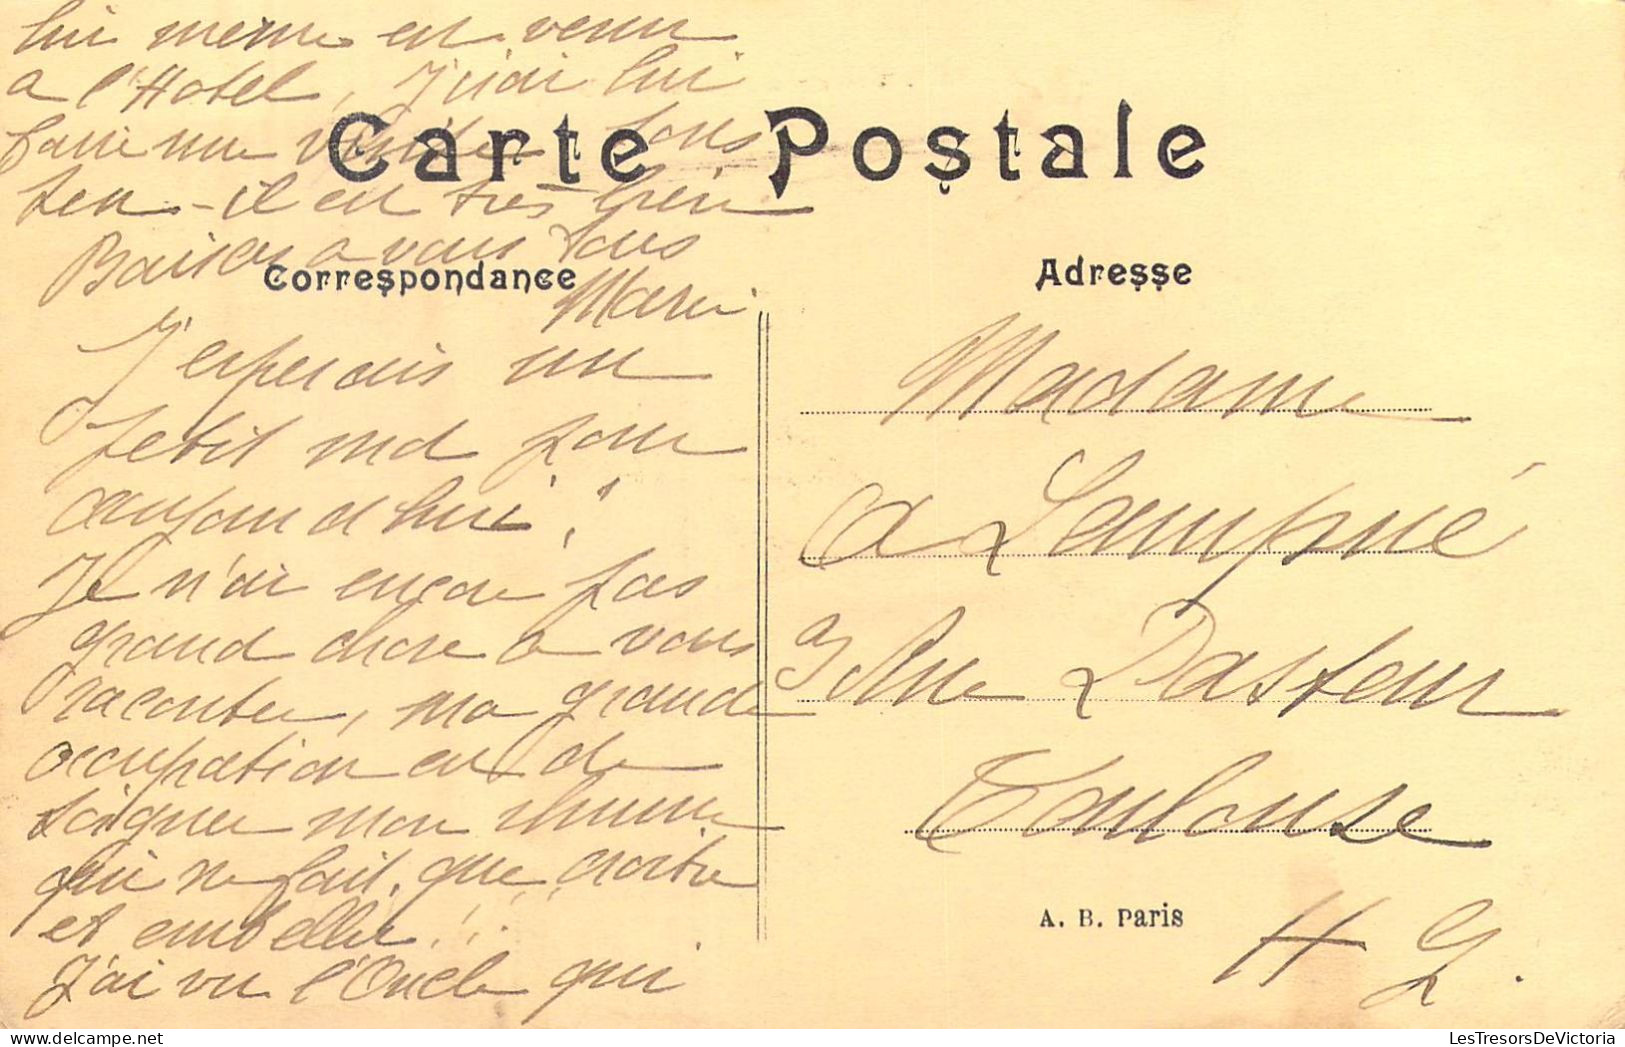 Carte Postale
Correspondance
J'esperais un
petit mot pour
aujourd'hui !
Je n'ai encore pas
grand chose a vous
raconter, ma grande
occupation est de
soigner mon rhume
qui ne fait que croitre
et embellir !..
J'ai vu l'Oncle qui
lui meme est venu
a l'Hotel, J'irai lui
faire une visite
il est très bien
Baisers a vous tous
Marie
Adresse
Madame
a Lampué
Rue Pasteur
Toulouse
H G.
A. B. Paris
LesTresorsDeVictoria